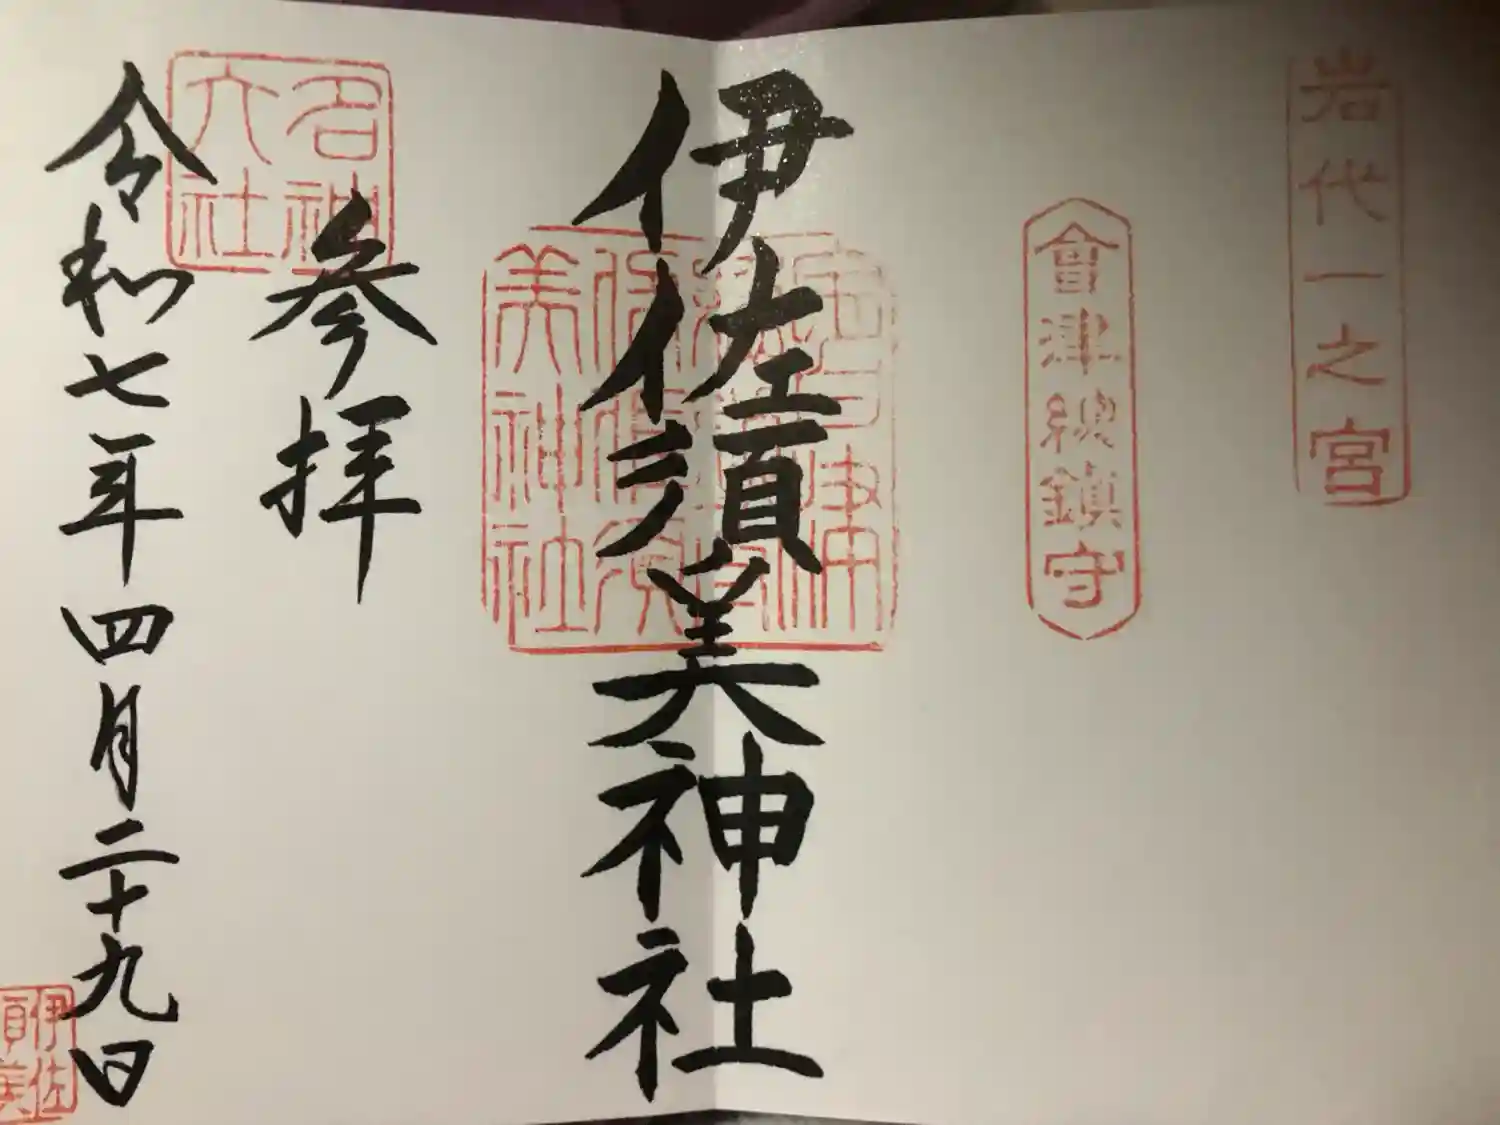 岩代一之宮
會津總鎮守
伊佐須美神社
参拝
名神
大社
令和七年四月二十九日
伊佐
須美